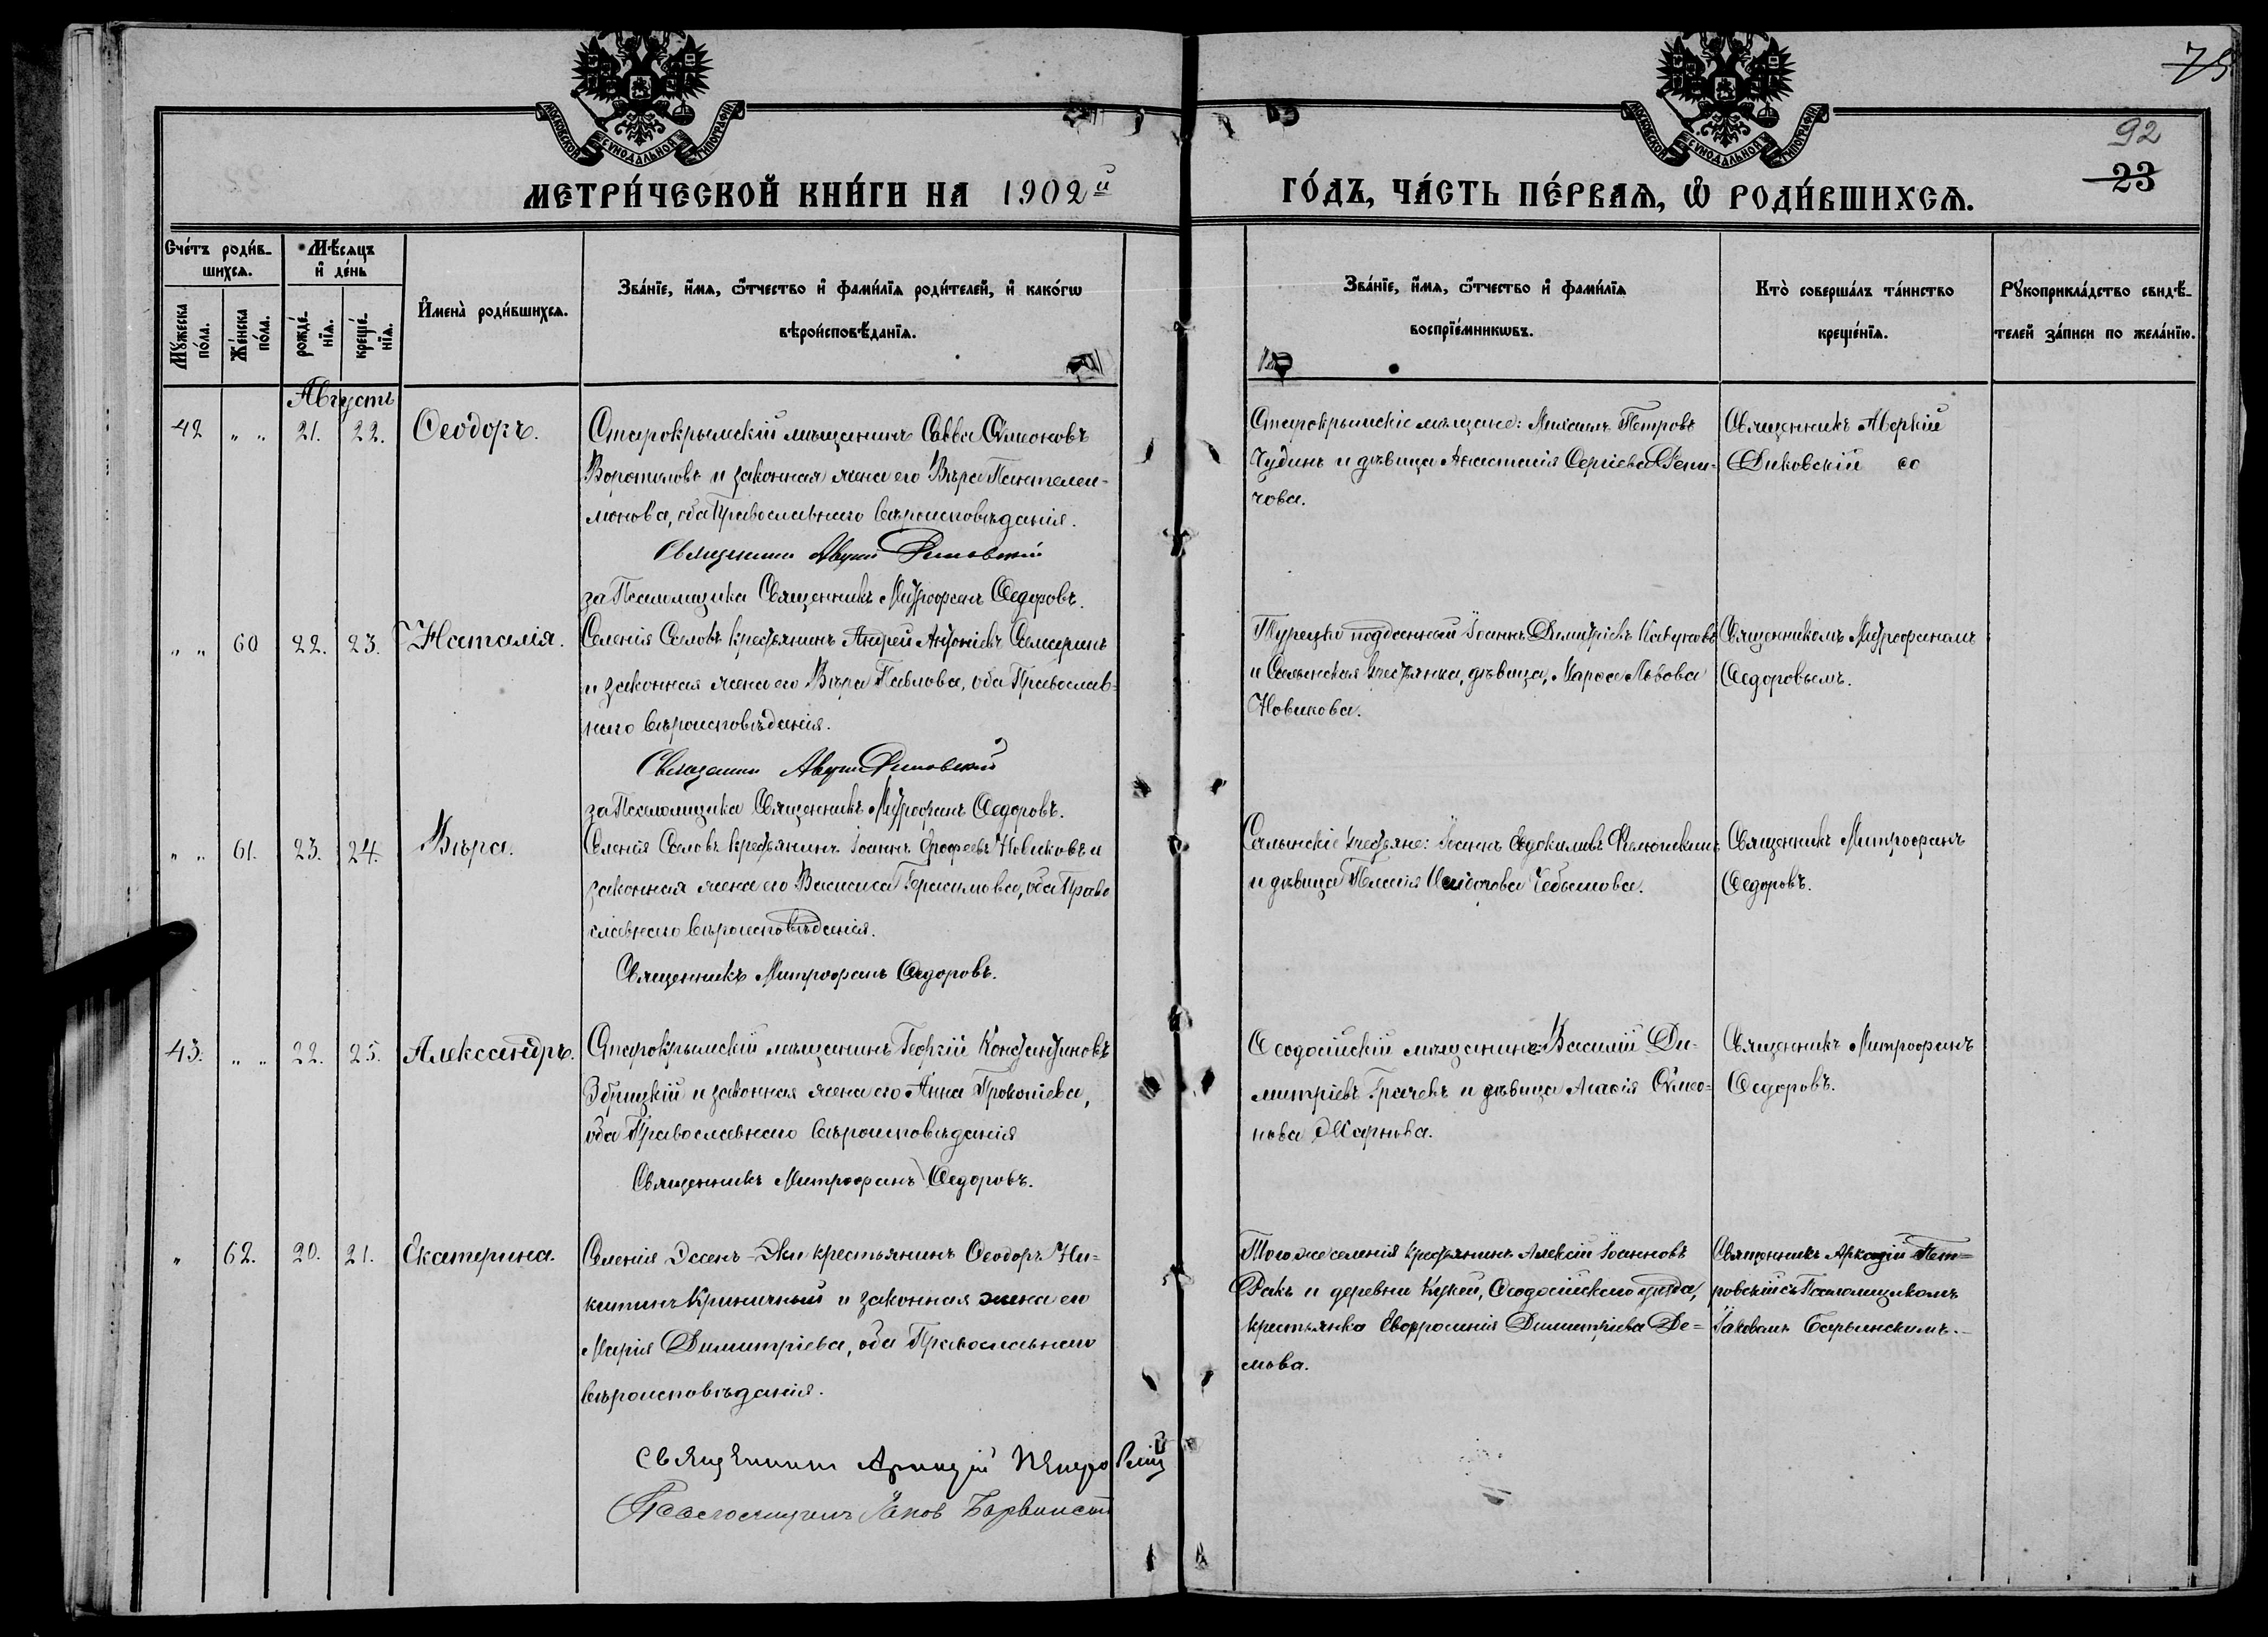 75
92
23
МОСКОВСКОЙ СѴНОДАЛЬНОЙ ТИПОГРАФІИ
МОСКОВСКОЙ СѴНОДАЛЬНОЙ ТИПОГРАФІИ
МЕТРИ́ЧЕСКОЙ КНИ́ГИ НА 1902й
ГО́ДЪ, ЧА́СТЬ ПЕ́РВАѦ, Ѡ РОДИ́ВШИХСѦ.
Счетъ роди́в-
шихсѧ.
Мꙋ́жеска по́ла.
Же́нска по́ла.
Мѣ́сяцъ
и҆ де́нь
рожде́-
нїѧ.
креще́-
нїѧ.
И҆мена̀ роди́вшихсѧ.
Зва́нїе, и҆́мѧ, ѻ҆́тчество и҆ фами́лїѧ роди́телей, и҆ како́гѡ
вѣроисповѣ́данїѧ.
Зва́нїе, и҆́мѧ, ѻ҆́тчество и҆ фами́лїѧ
воспрїе́мникѡвъ.
Кто̀ соверша́лъ та́инство
креще́нїѧ.
Рꙋкоприкла́дство свидѣ́-
телей за́писи по жела́нїю.
Августъ
42 " " 21. 22. Ѳеодоръ.
Старокрымскій мѣщанинъ Савва Сѵмеоновъ
Воротиловъ и законная жена его Вѣра Пантелеи-
монова, оба Православнаго вѣроисповѣданія.
Священникъ Аверкій Диковскій
за Псаломщика Священникъ Митрофанъ Ѳедоровъ.
Старокрымскіе мѣщане: Михаилъ Петровъ
Чудинъ и дѣвица Анастасія Сергіева
чова.
Священникъ Аверкій
Диковскій
" " 60 22. 23. Наталія.
Селенія Саловъ крестьянинъ Андрей Антоніевъ
и законная жена его Вѣра Павлова, оба Православ-
наго вѣроисповѣданія.
Священникъ Аверкій Диковскій
за Псаломщика Священникъ Митрофанъ Ѳедоровъ.
Турецко подданный Іоаннъ Димитріевъ
и Салынская крестьянка, дѣвица, Марѳа Львова
Новикова.
Священникомъ Митрофаномъ
Ѳедоровымъ.
" " 61. 23. 24. Вѣра.
Селенія Саловъ крестьянинъ Іоаннъ Новиковъ и
законная жена его Васисса Герасимова, оба Право
славнаго вѣроисповѣданія.
Священникъ Митрофанъ Ѳедоровъ.
Салынскіе крестьяне: Іоаннъ Евдокимовъ
и дѣвица Пелагія Чебышова.
Священникъ Митрофанъ
Ѳедоровъ.
43. " " 22. 25. Александръ.
Старокрымскій мѣщанинъ Георгій Константиновъ
Збрицкій и законная жена его Анна Прокопіева,
оба Православнаго вѣроисповѣданія
Священникъ Митрофанъ Ѳедоровъ.
Ѳеодосійскій мѣщанинъ: Василій Ди-
митріевъ Грачевъ и дѣвица Сѵмео-
нова
Священникъ Митрофанъ
Ѳедоровъ.
" 62. 20. 21. Екатерина.
Селенія Эссенъ-Эки крестьянинъ Ѳеодоръ Ни-
китинъ Криничный и законная жена его
Марія Димитріева, оба Православнаго
вѣроисповѣданія.
Священникъ Аркадій Петровскій
Псаломщикъ Іаковъ Барвинскій
Того же селенія крестьянинъ Алексій Іоанновъ
Ракъ и деревни Кукей, Ѳеодосійскаго уѣзда,
крестьянка Евфросинія Димитріева Де-
мова.
Священникъ Аркадій Пет-
ровскій съ Псаломщикомъ
Іаковомъ Барвинскимъ.